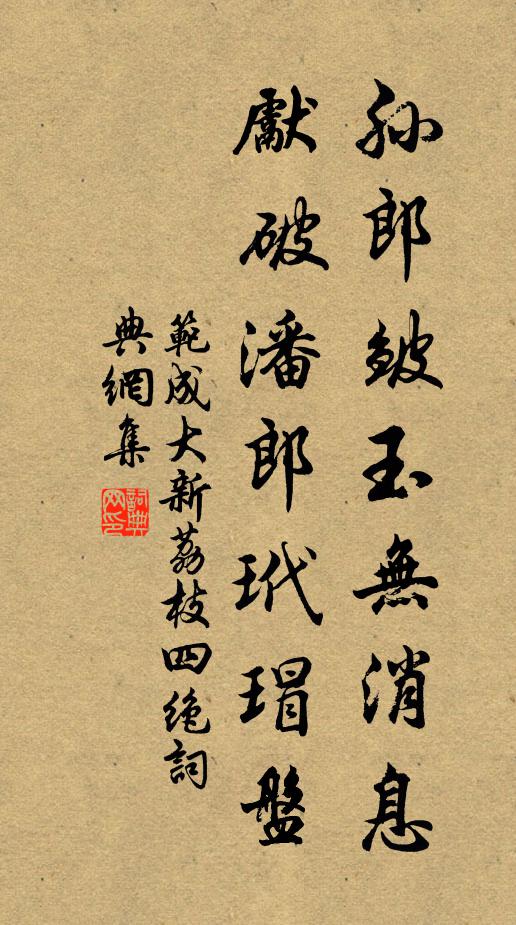 孙郎皱玉無消息
獻破潘郎玳瑁盤
範成大新荔枝四绝詞
典網集
詞典
网印